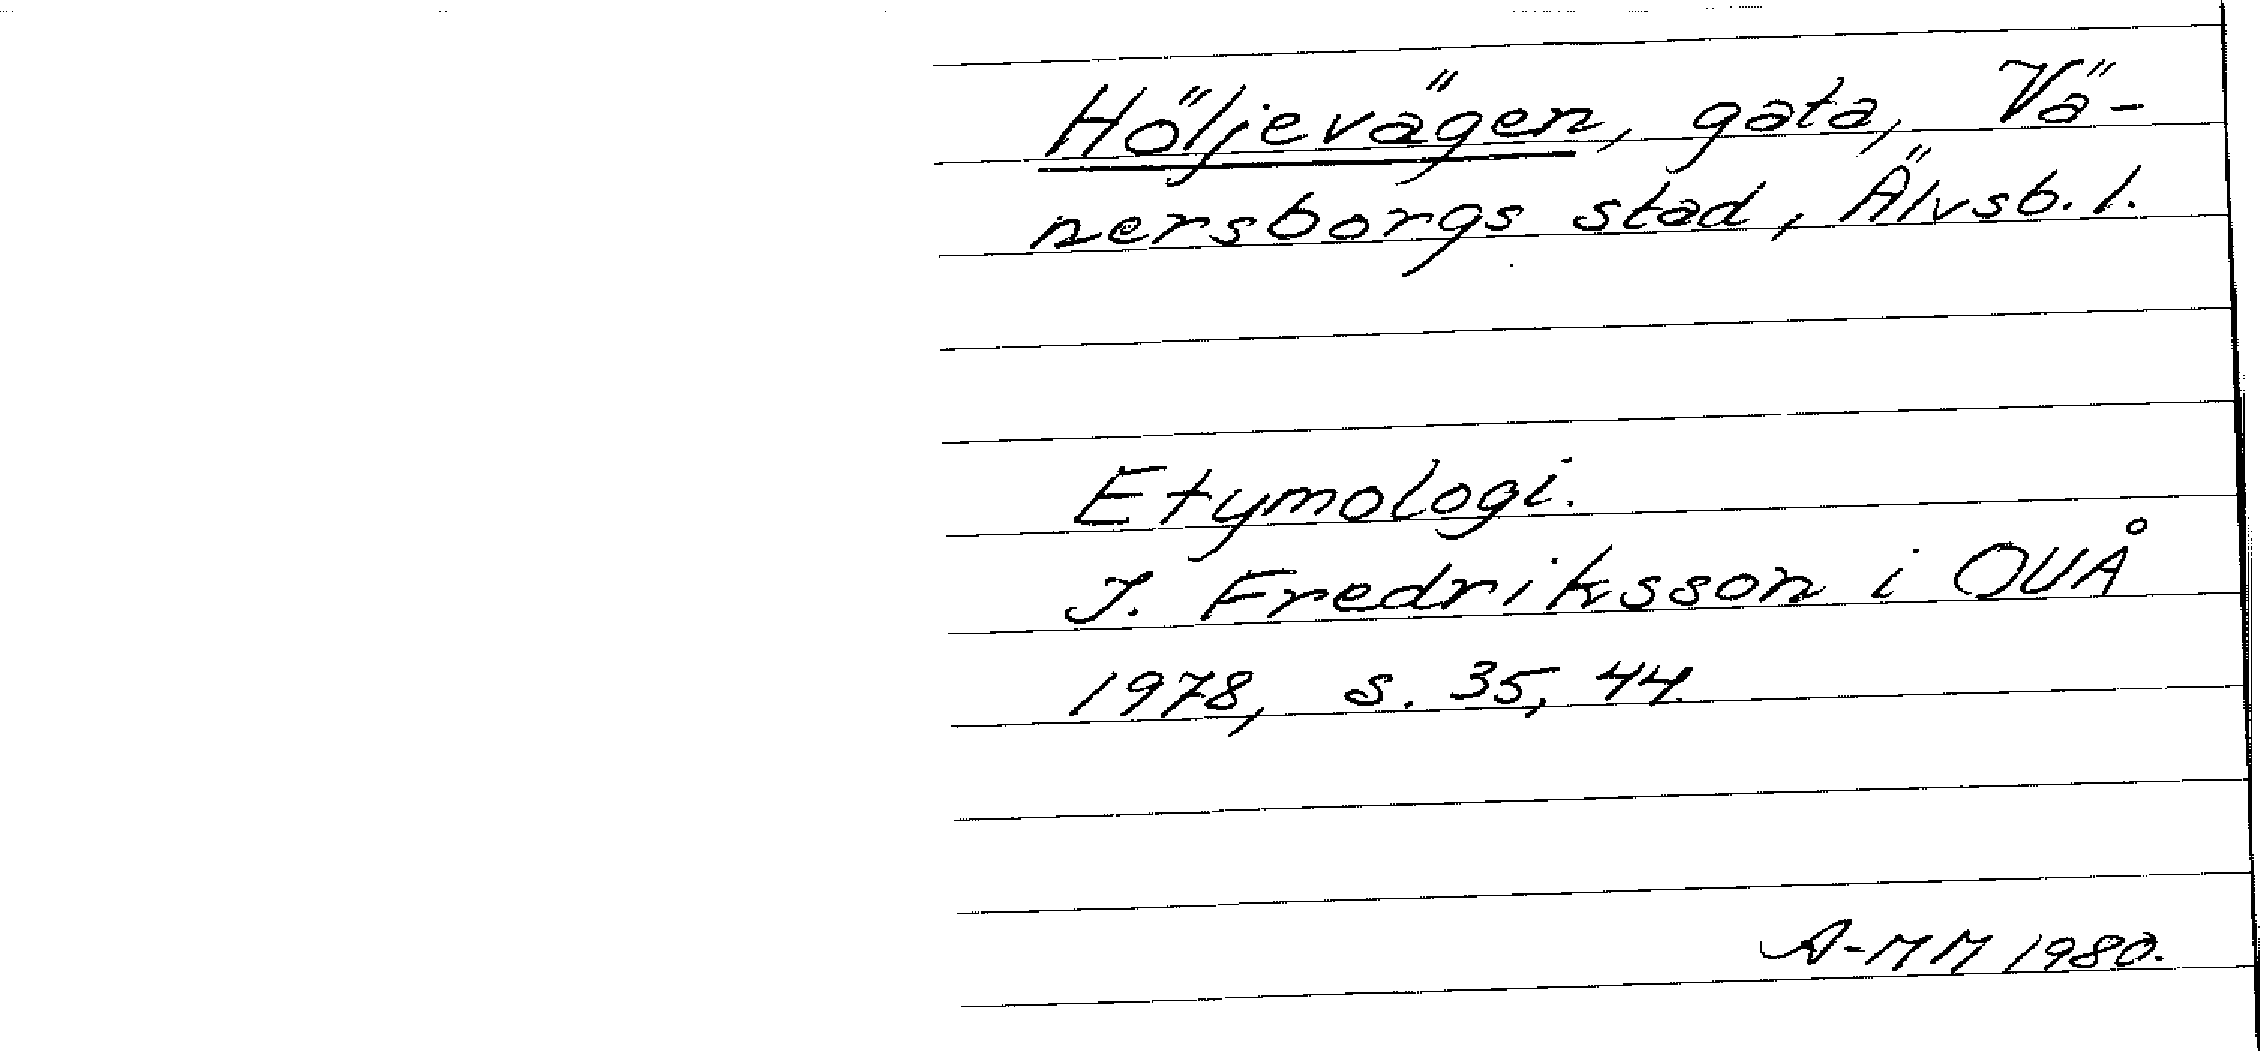 Höljevägen, gata, Vä-
nersborgs stad, Älvsb. l.
Etymologi.
J. Fredriksson i OUÅ
1978, s. 35, 44.
A-MM 1980.